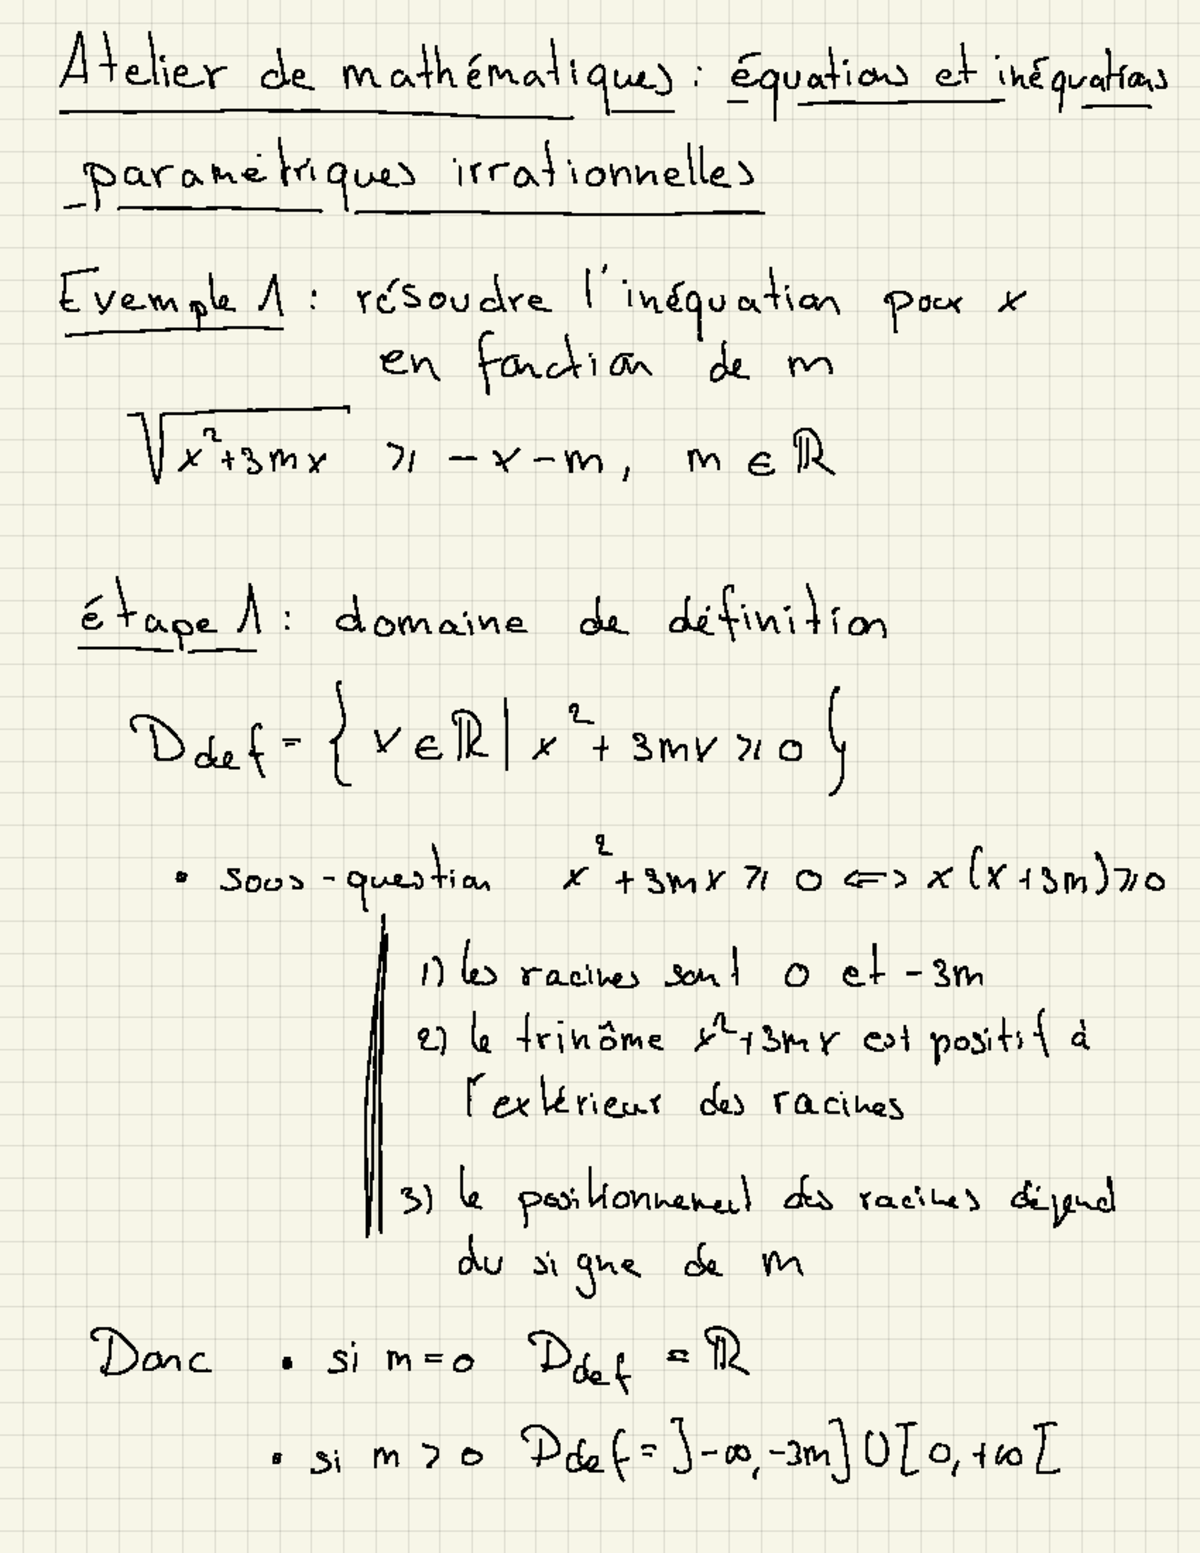 Atelier de mathématiques : équations et inéquations
paramétriques irrationnelles
Exemple 1 : résoudre l'inéquation pour x
en fonction de m
√(x²+3mx) ⩾ -x-m, m ∈ ℝ
étape 1 : domaine de définition
D def = { x ∈ ℝ | x² + 3mx ⩾ 0 }
• sous-question x² + 3mx ⩾ 0 <=> x(x+3m) ⩾ 0
1) les racines sont 0 et -3m
2) le trinôme x²+3mx est positif à
l'extérieur des racines
3) le positionnement des racines dépend
du signe de m
Donc • si m = 0 D def = ℝ
• si m > 0 D def = ]-∞, -3m] ∪ [0, +∞[